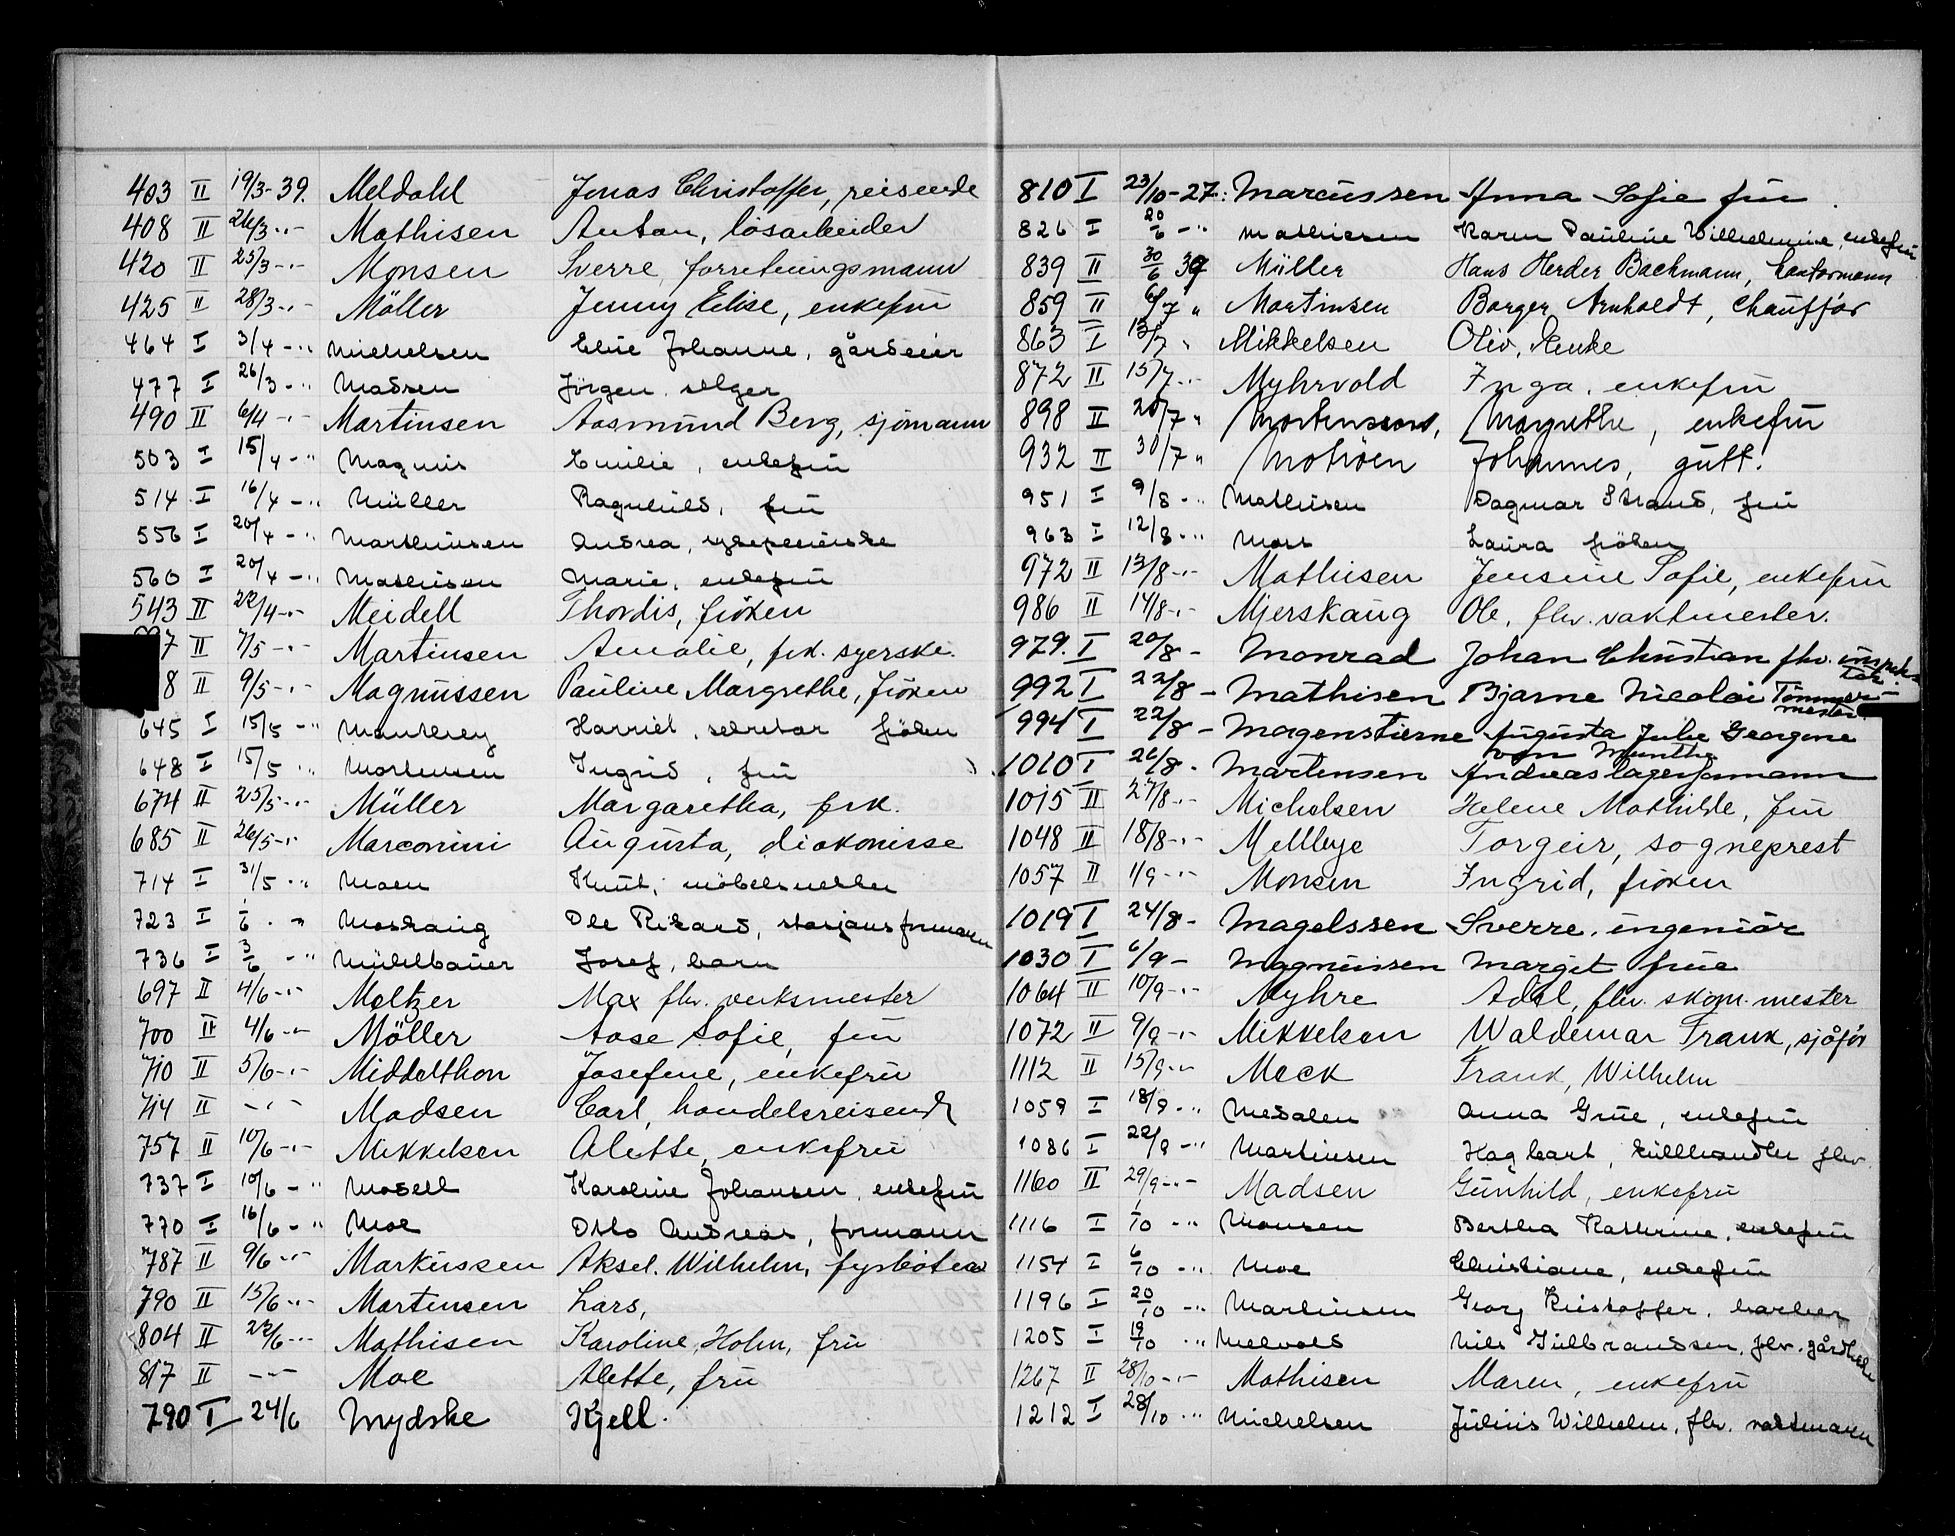 403 II 19/3-39. Meldahl Jonas Christoffer, reisende
408 II 24/3 -"- Mathisen Anton, løsarbeider
420 II 25/3 -"- Monsen Sverre, forretningsmann
425 II 28/3 -"- Möller Jenny Elise, enkefru
464 I 3/4 -" Michelsen Eline Johanne, gårdeier
477 I 26/3 -" Madsen Jörgen. selger
490 II 6/4 -"- Martinsen Aasmund Berg, sjömann
503 I 15/4 -" Magnus Emilie, enkefru
514 I 16/4 -" Müller Ragnhild, fru
556 I 20/4 -" Marthinsen Andrea,
560 I 20/4 -" Mathisen Marie, enkefru
543 II 22/4 -"- Meidell Thordis, fröken
7 II 7/5 -"- Martinsen Amalie, frk. syerske.
8 II 9/5 -"- Magnussen Pauline Margrethe, fröken
645 I 15/5 -" Harriet, sekretær fröken
648 I 15/5 " Mortensen Ingrid, fru
674 II 25/5 -"- Müller Margaretha, frk.
685 II 26/5 -"- Marconini Augusta, diakonisse
714 I 31/5 -" Moen Knut, möbelsnekker
723 I 1/6 - " Moskaug Ole Rikard, stasjonsformann
736 I 3/6 -" Mühlbauer Josef, barn
697 II 4/6 -"- Meltzer Max fhv. verksmester
700 II 4/6 -"- Möller Aase Sofie, fru
710 II 5/6 -"- Middelthon Josefine, enkefru
714 II -"- Madsen Carl, handelsreisende
757 II 10/6 -"- Mikkelsen Alette, enkefru
737 I 10/6 -" Modell Karoline Johansen, enkefru
770 I 16/6 -" Moe Otto Andreas, formann
787 II 9/6 -"- Markussen Aksel. Wilhelm, fyrböter
790 II 15/6 -"- Martinsen Lars,
804 II 22/6 -"- Mathisen Karoline, Holm, fru
817 II -"- Moe Alette, fru
790 I 24/6 Mydske Kjell.
810 I 23/10-27: Marcussen Anna Sofie fru
826 I 20/6 -" Mathiesen Karen Pauline Wilhelmine, enkefru
839 II 30/6 39 Müller Hans Herder Bachmann, kontormann
859 II 6/7 " Martinsen Borger Arnholdt, chaufför
863 I 13/7 " Mikkelsen Oliv, Kenke
872 II 15/7 -"- Myhrvold Inga, enkefru
898 II 20/7 " Mortensen, Margrethe, enkefru
932 II 30/7 " Johannes, gutt.
951 I 9/8 -" Mathisen Dagmar Strand, fru
963 I 12/8 -" Moss Laura fröken
972 II 13/8 -"- Mathisen Jensine Sofie, enkefru
986 II 14/8 -"- Mjerskaug Ole, fhv. vaktmester.
979. I 20/8 - Monrad Johan Christian fhv. inspek-
tör.
992 I 22/8 - Mathisen Bjarne Nicolai Tömmer-
mester
994 I 22/8 - Magenstierne Augusta Julie Georgine
von Munthe
1010 I 26/8 - Martensen Andreas lagerformann
1015 II 27/8 -"- Michelsen Helene Mathilde, fru
1048 II 18/8 -"- Mellbye Torgeir, sogneprest
1057 II 1/9 -"- Monsen Ingrid, fröken
1019 I 24/8 - Magelssen Sverre, ingeniör
1030 I 6/9 - Magnussen Margit frue
1064 II 10/9 -"- Myhre Adel, fhv. skom. mester
1072 II 9/9 -"- Mikkelsen Waldemar Frank, sjåför
1112 II 15/9 -"- Meck Frank, Wilhelm
1059 I 18/9 -" Medalen Anna Grue, enkefru
1086 I 22/9 -" Martinsen Hagbart, kullhandler fhv.
1160 II 29/9 -"- Madsen Gunhild, enkefru
1116 I 1/10 -" Monsen Bertha Kathrine, enkefru
1154 I 6/10 -" Moe Christiane, enkefru
1196 I 20/10 -" Martinsen Georg Kristoffer, barber
1205 I 19/10 " Melvold Nils Gulbrandsen, fhv.
1267 II 28/10 -"- Mathisen Maren, enkefru
1212 I 28/10 -" Michelsen Julius Wilhelm, fhv. vaktmann